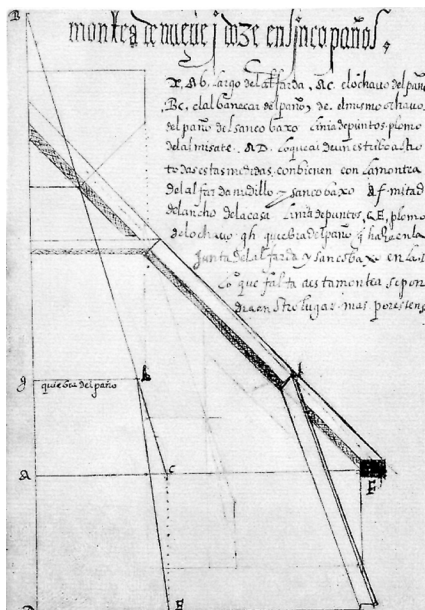 montea de nueve j doze en sinco paños,
B
X, Ab, largo del alfarda, Ac, el ochavo del paño
Bc, el albanecar del paño, de, el mismo ochavo,
del paño de sanco baxo linia de puntos, plomo
del almisate, AD, lo que ai de un estribo a otro
todas estas medidas, conbienen con la montea
del alfar da nudillo y sanco baxo Af mitad
del ancho de la casa linia de puntos, CE, plomo
del ochavo, gh quiebra del paño q hazen la
junta del alfarda y sanco baxo en la
lo que falta a esta montea se pon
dra en otro lugar, mas por estenso
h
I
quiebra del paño
g
A
C
F
D
E